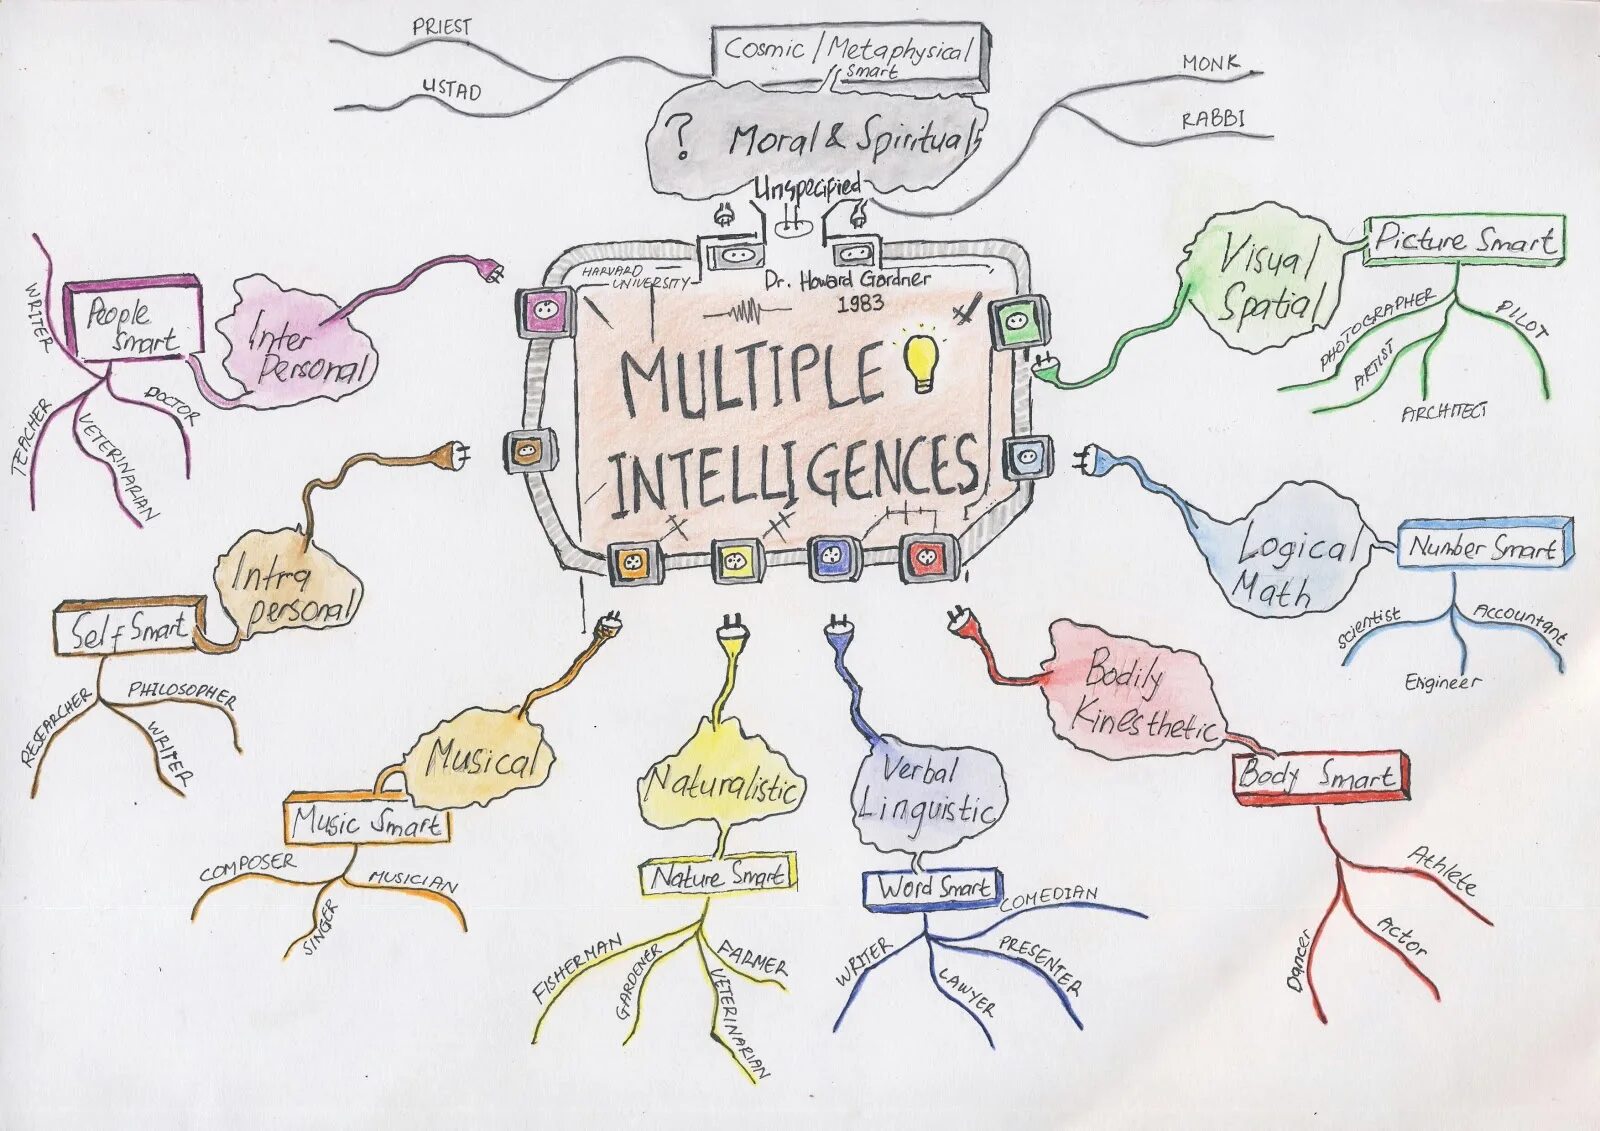 PRIEST
USTAD
Cosmic / Metaphysical
Smart
MONK
RABBI
? Moral & Spiritual
Unspecified
HARVARD
UNIVERSITY
Dr. Howard Gardner
1983
MULTIPLE
INTELLIGENCES
Visual
Spatial
Picture Smart
PHOTOGRAPHER
ARTIST
ARCHITECT
PILOT
Logical
Math
Number Smart
Scientist
Engineer
Accountant
Bodily
Kinesthetic
Body Smart
Dancer
Actor
Athlete
Verbal
Linguistic
Word Smart
WRITER
LAWYER
PRESENTER
COMEDIAN
Naturalistic
Nature Smart
FISHERMAN
GARDENER
VETERINARIAN
FARMER
Musical
Music Smart
COMPOSER
SINGER
MUSICIAN
Intra
personal
Self Smart
RESEARCHER
WRITER
PHILOSOPHER
Inter
Personal
People
Smart
WRITER
TEACHER
VETERINARIAN
DOCTOR